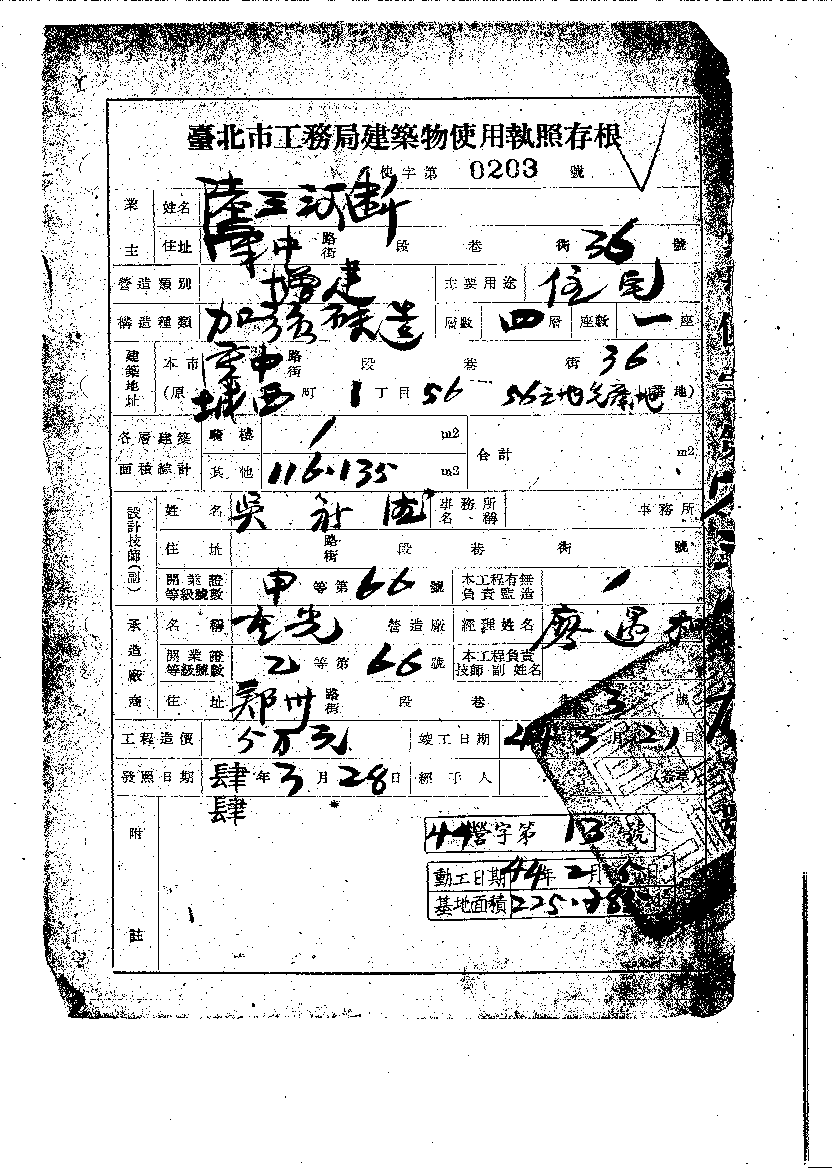 臺北市工務局建築物使用執照存根
使字第 0203 號
業主 姓名 陸三河
住址 中 路街 段 巷 街 36 號
營造類別 增建 主要用途 住宅
構造種類 加強磚造 層數 四 層 座數 一 座
建築地址 本市 中 路街 段 巷 街 36
(原 城西 町 1 丁目 56 56 地)
各層建築面積綜計 騎樓 / m2 合計 m2
其他 116.135 m2
設計技師(副) 姓名 吳 事務所名稱 事務所
住址 路街 段 巷 街 號
開業證等級號數 甲 等第 66 號 本工程有無負責監造 /
承造廠商 名稱 光 營造廠 經理姓名 廖
開業證等級號數 乙 等第 66 號 本工程負責技師副姓名
住址 鄭州 路街 段 巷 街 3 號
工程造價 万元 竣工日期 44 3 月 21 日
發照日期 肆肆 年 3 月 28 日 經手人
附註
44營字第 號
動工日期 44年 2月 日
基地面積 225.